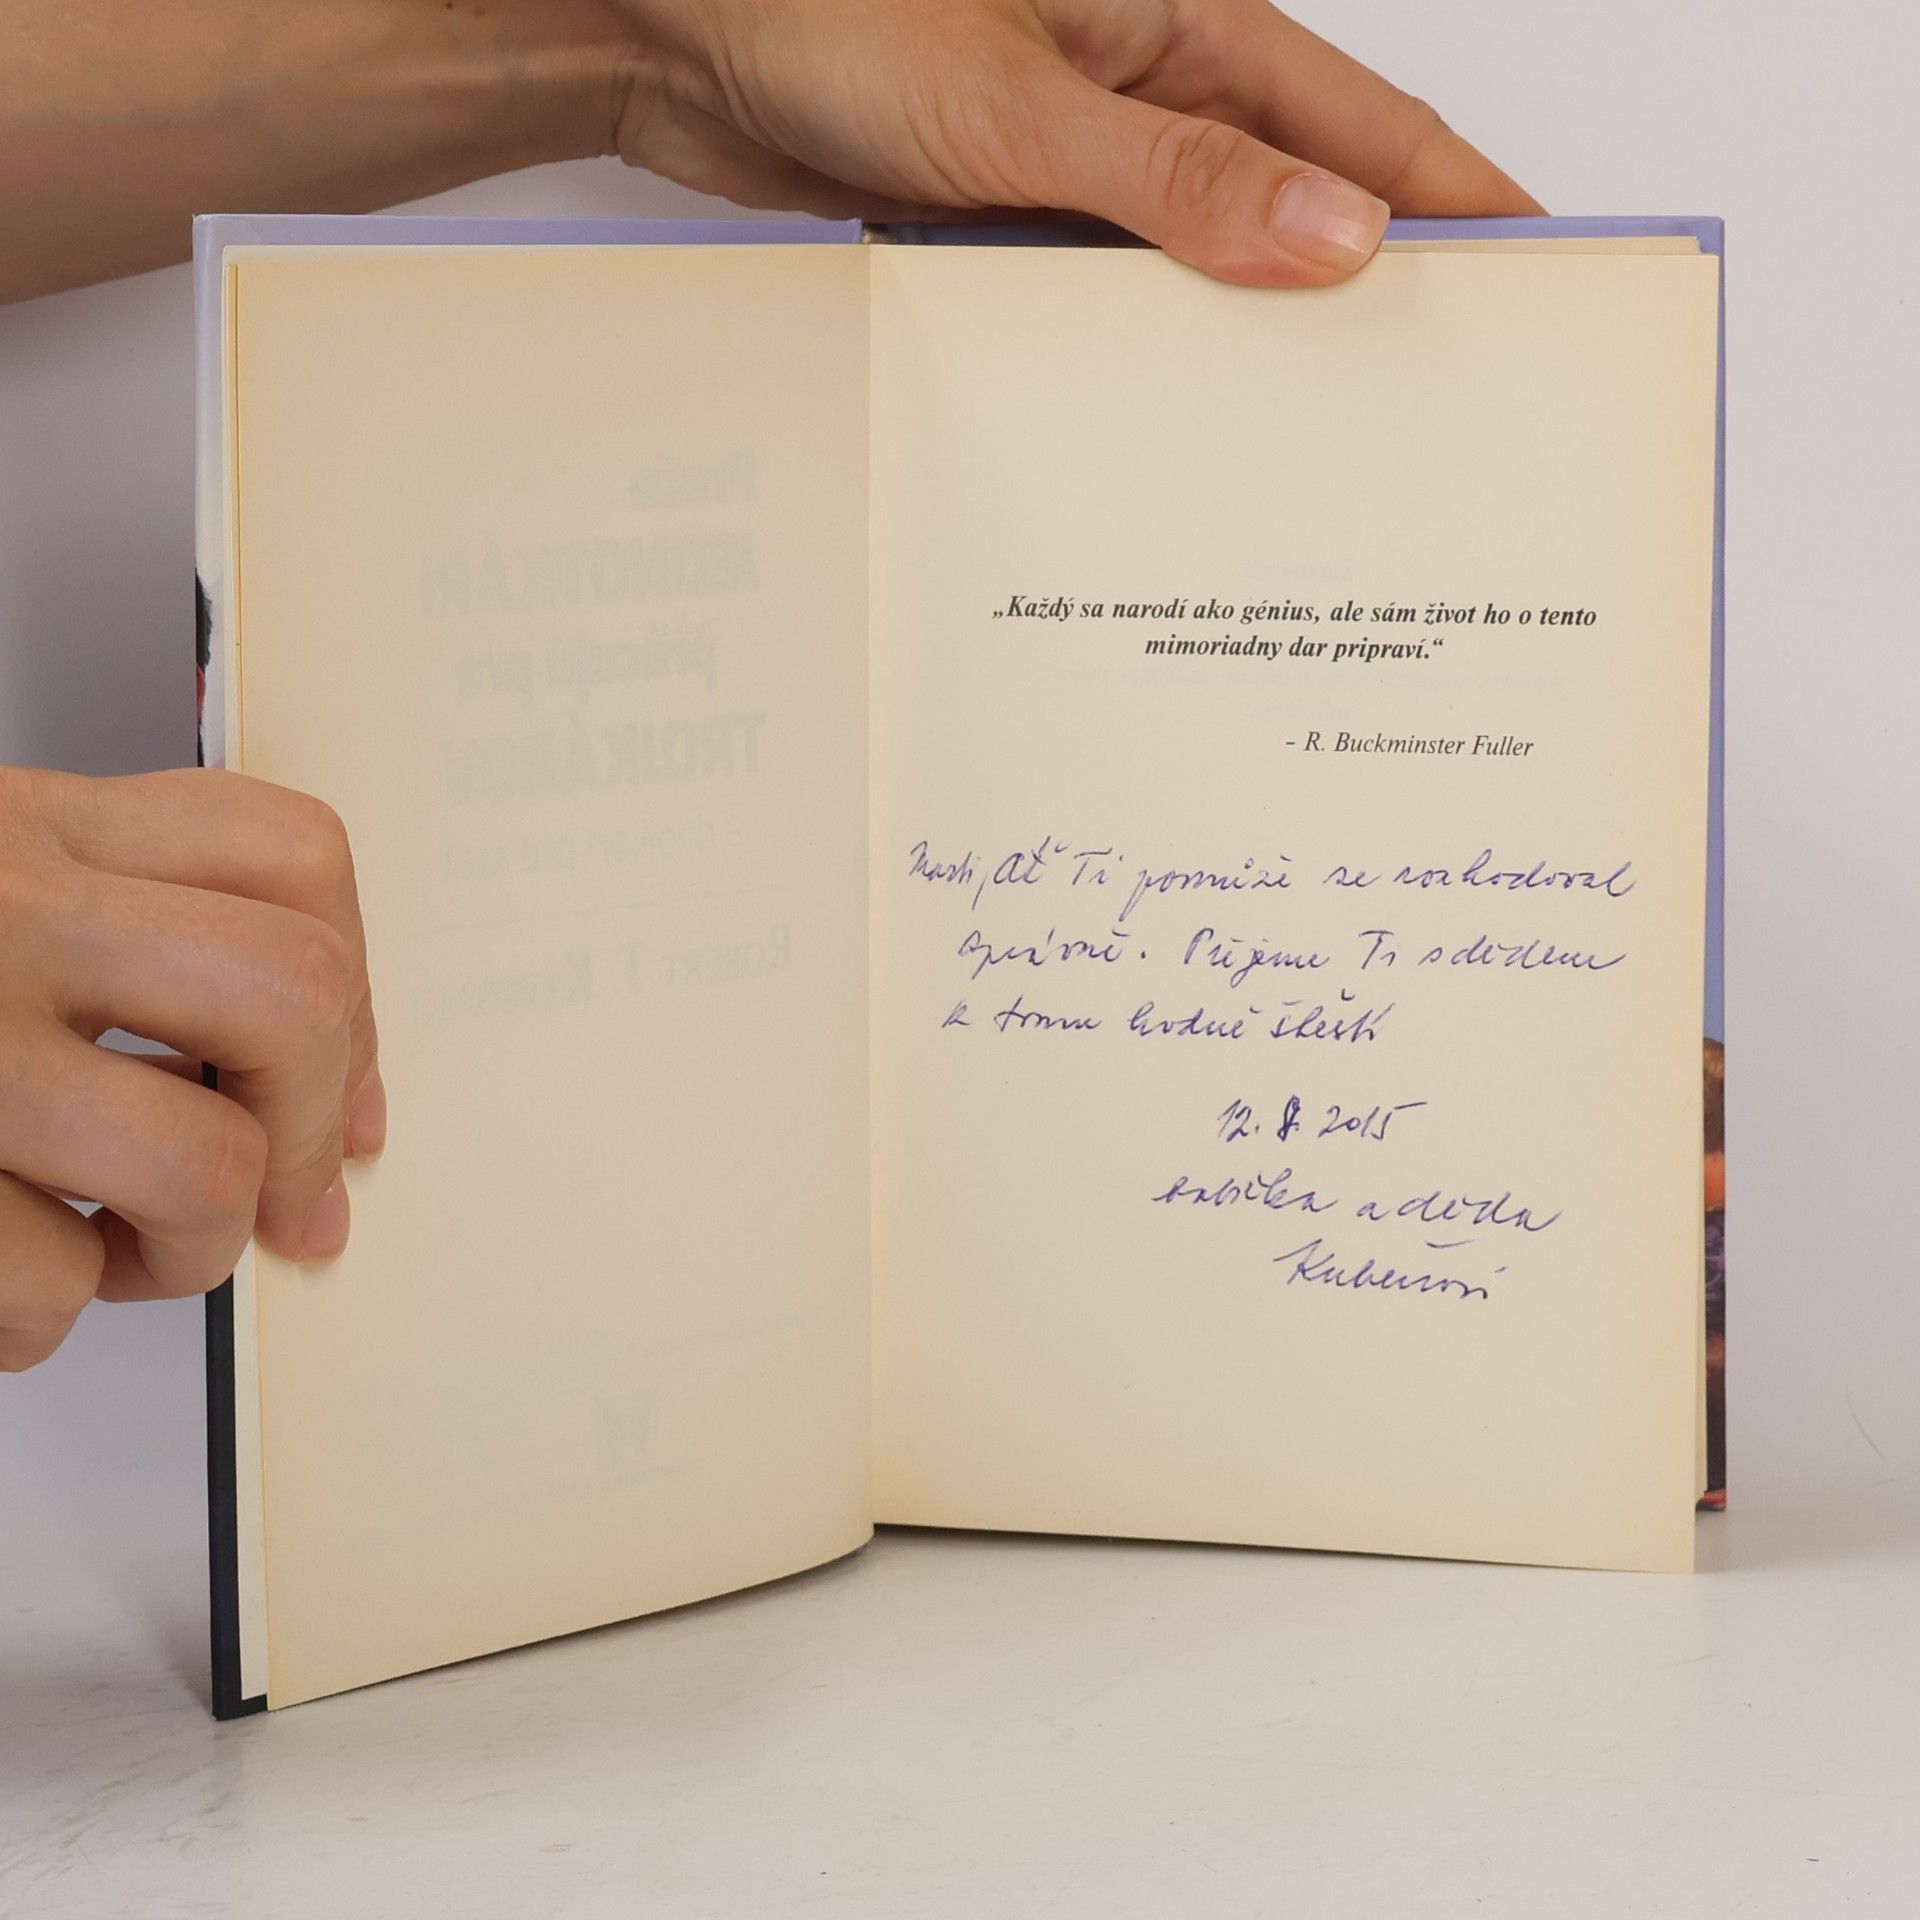 Prečo
JEDNOTKÁRI
pracujú pre
TROJKÁROV
„Každý sa narodí ako génius, ale sám život ho o tento
mimoriadny dar pripraví.“
– R. Buckminster Fuller
Marti, Ať Ti pomůže se rozhodoval
správně. Přejeme Ti s dědem
k tomu hodně štěstí
12. 8. 2015
babička a děda